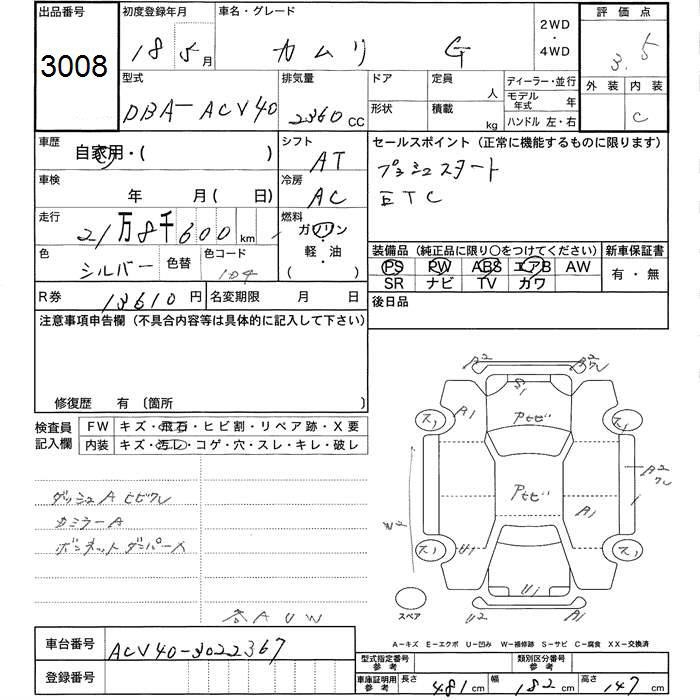 出品番号
3008
初度登録年月
18 5月
車名・グレード
カムリ G
2WD
・
4WD
評価点
3.5
外装 内装
C
型式
DBA-ACV40
排気量
2360cc
ドア
形状
定員 人
積載 kg
ディーラー・並行
モデル年式 年
ハンドル 左・右
車歴
自家用・( )
シフト
AT
セールスポイント(正常に機能するものに限ります)
プッシュスタート
ETC
車検
年 月( 日)
冷房
AC
走行
21万8千600km
燃料
ガソリン
・
軽油
( )
色
シルバー
色替
色コード
1D4
装備品(純正品に限り○をつけてください)
PS PW ABS エアB AW
SR ナビ TV カワ
新車保証書
有・無
R券 13610円
名変期限 月 日
後日品
注意事項申告欄(不具合内容等は具体的に記入して下さい)
修復歴 有〔箇所 〕
検査員記入欄
FW キズ・飛石・ヒビ割・リペア跡・X要
内装 キズ・汚レ・コゲ・穴・スレ・キレ・破レ
ダッシュA ヒビワレ
ボンネットダンパー
各AUW
A2
A2
ワレ
S1
A1
ス1
ス1
Pヒビ
Pヒビ
A2
ワレ
A1
ス1
ス1
U1
U1
U2
A1
スペア
A-キズ E-エクボ U-凹み W-補修跡 S-サビ C-腐食 XX-交換済
車台番号
ACV40-3022367
登録番号
型式指定番号参考
類別区分番号参考
車庫証明用参考
長さ 481cm 幅 182cm 高さ 147cm